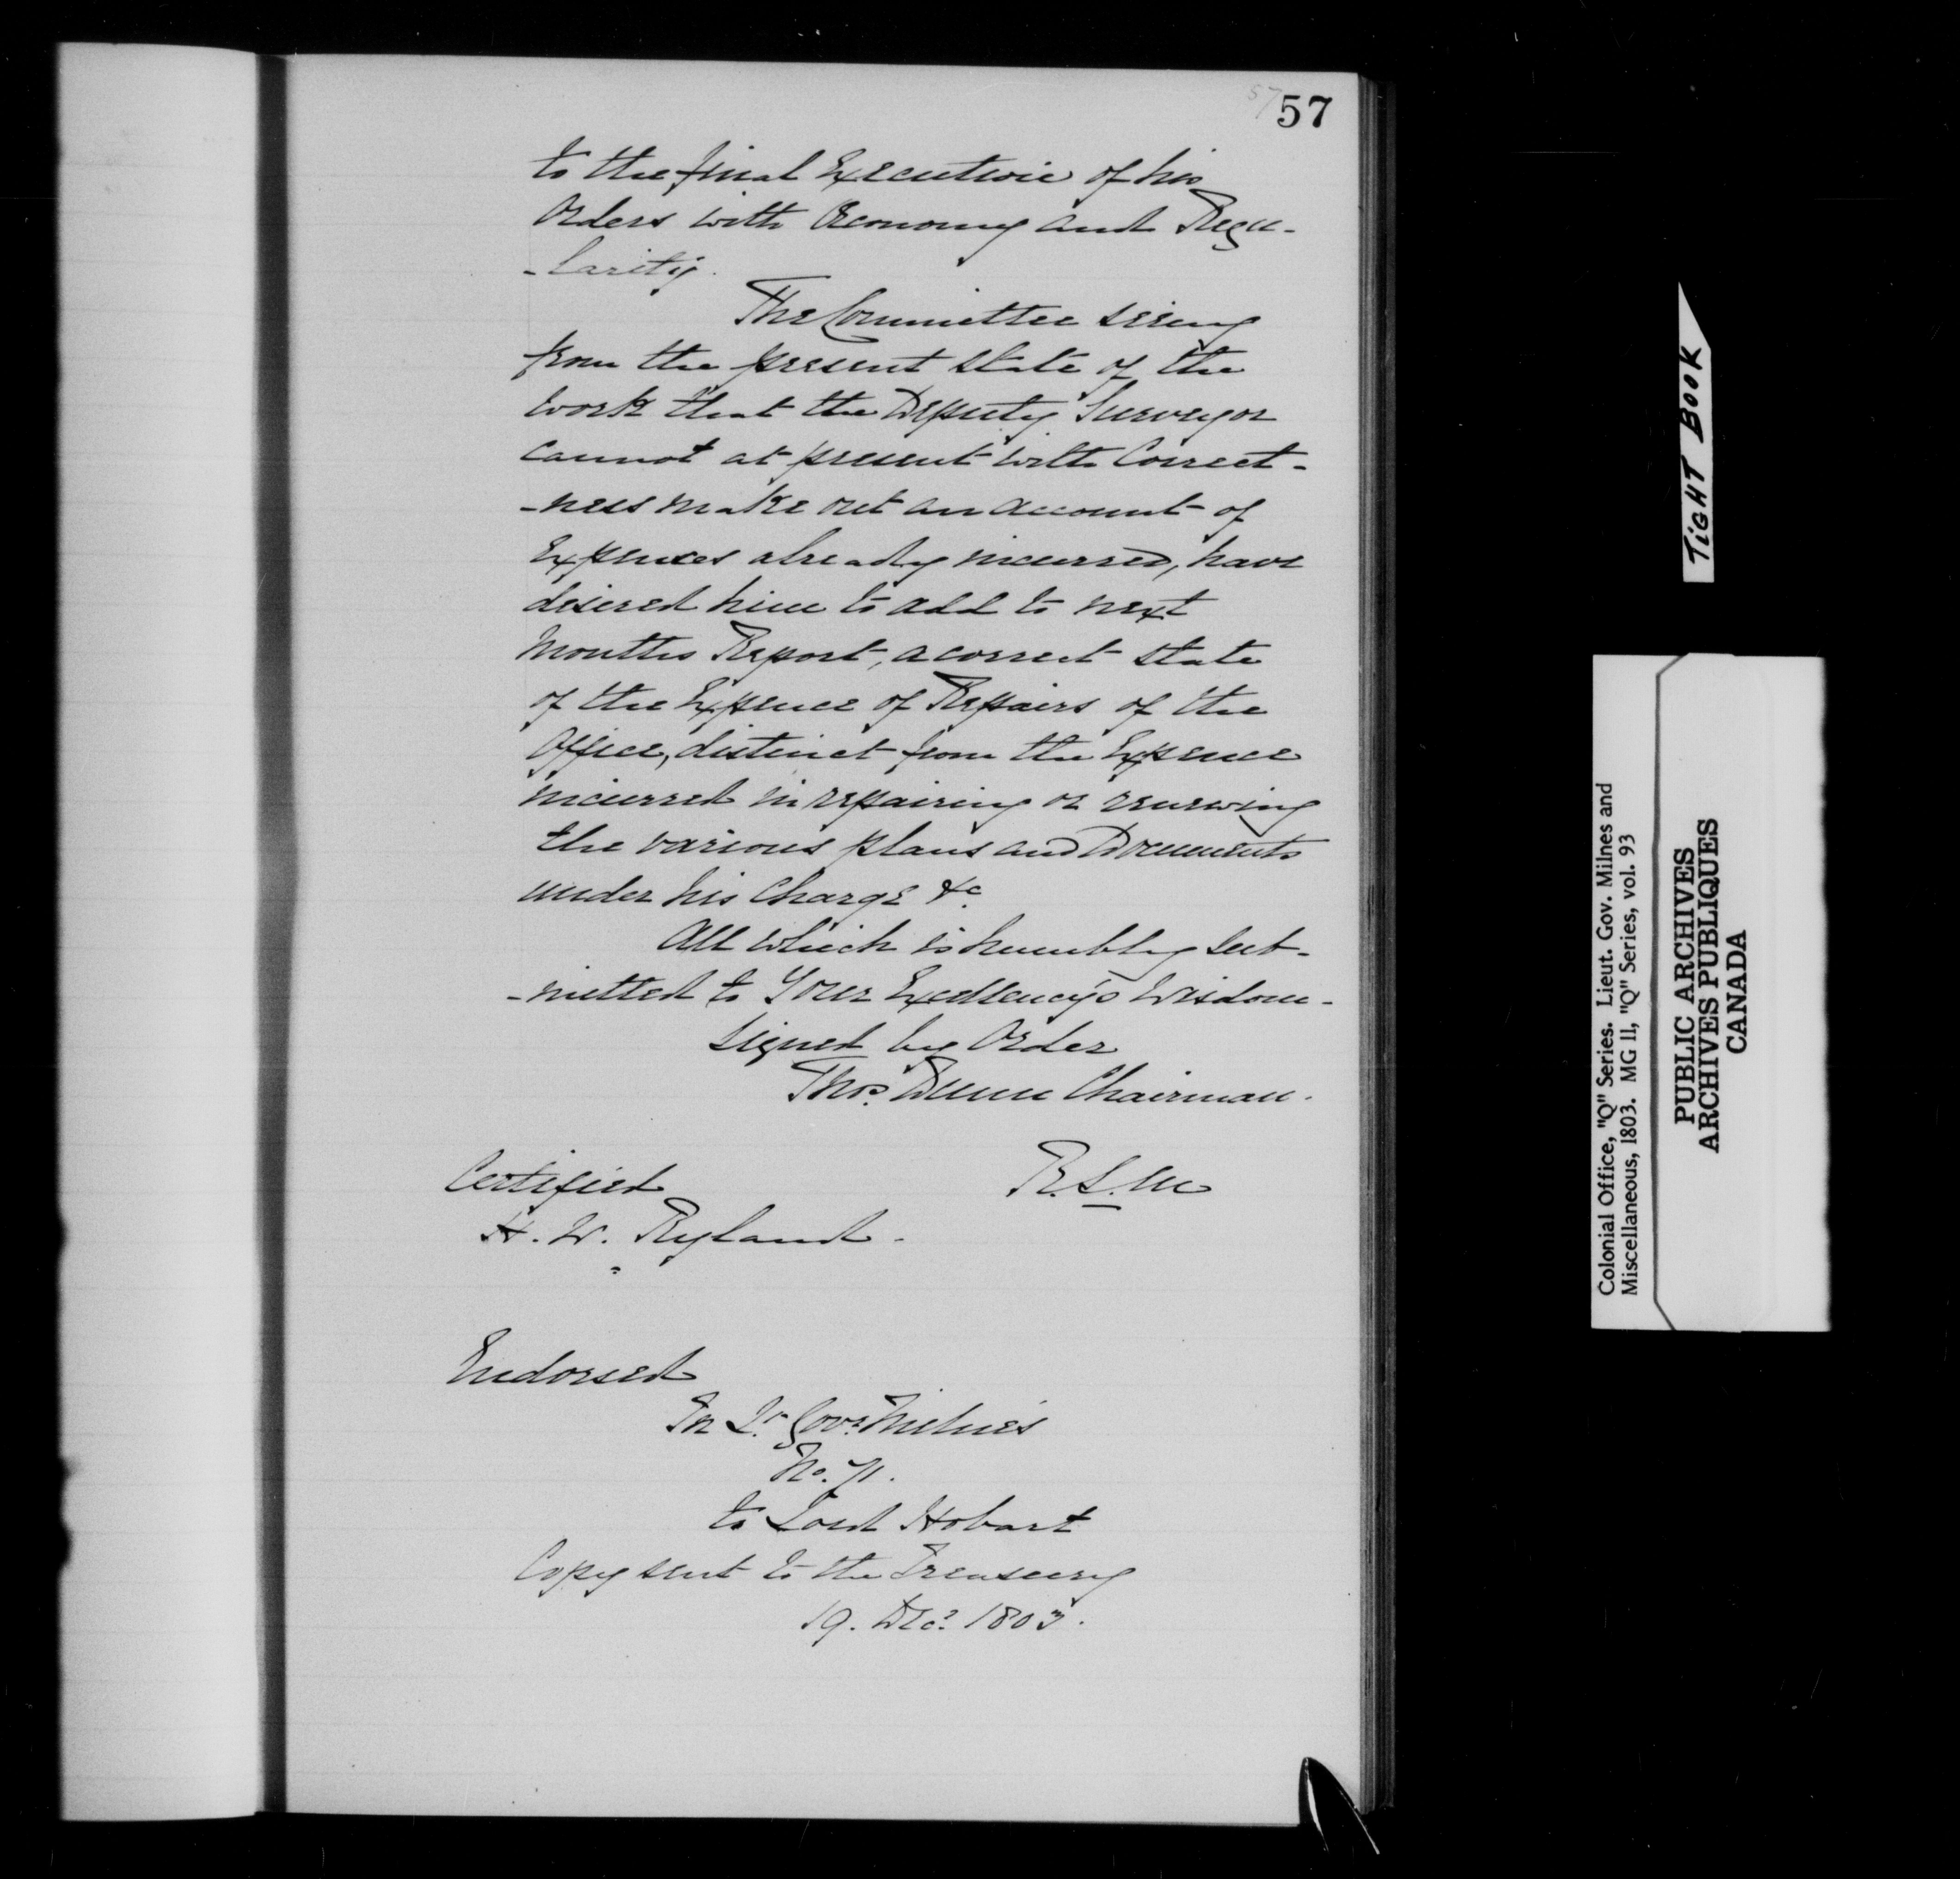 57
57
to the final Execution of his
Orders with Oeconomy and Regu-
-larity.
The Committee seeing
from the present state of the
work that the Deputy Surveyor
cannot at present with Correct-
-ness make out an account of
Expences already incurred, have
desired him to add to next
Months Report, a correct state
of the Expence of Repairs of the
Office, distinct from the Expence
incurred in repairing or renewing
the various plans and Documents
under his Charge &c.
All which is humbly sub-
-mitted to Your Excellency's Wisdom -
Signed by Order
Thos. Dunn Chairman.
Certified
R. S. M
H. W. Ryland.
Endorsed
In Lt. Govr. Milnes's
No. 71.
to Lord Hobart
Copy sent to the Treasury
19. Decr. 1803.
TIGHT BOOK
Colonial Office, "Q" Series. Lieut. Gov. Milnes and
Miscellaneous, 1803. MG 11, "Q" Series, vol. 93
PUBLIC ARCHIVES
ARCHIVES PUBLIQUES
CANADA